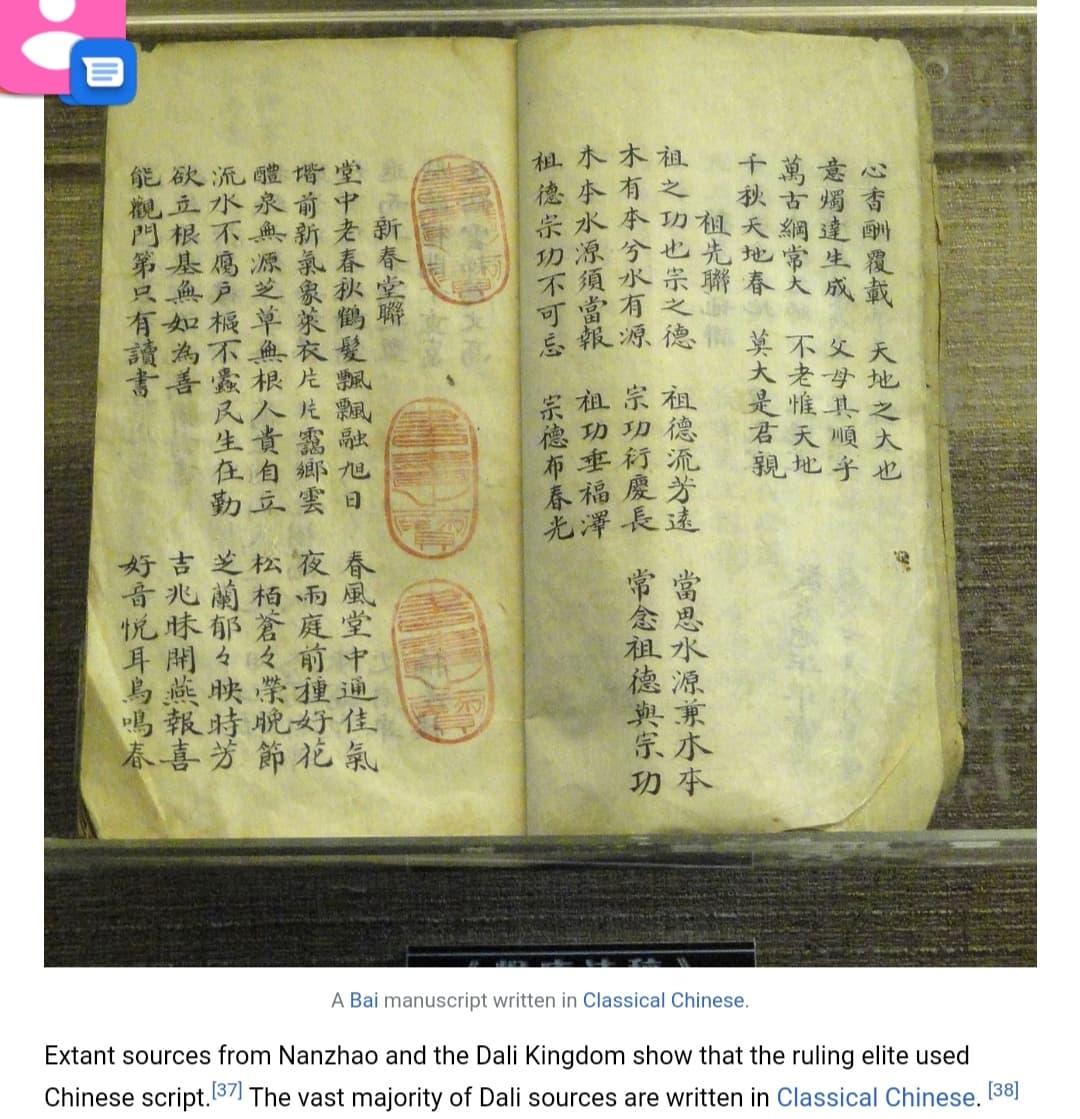 心香酬覆載 天地之大也
意燭達生成 父母其順乎
萬古綱常大 不老惟天地
千秋天地春 莫大是君親
祖先聯
祖之功也宗之德 祖德流芳遠 當思水源兼木本
木有本兮水有源 宗功衍慶長 常念祖德與宗功
木本水源須當報 祖功垂福澤
祖德宗功不可忘 宗德布春光
新春堂聯
堂中老春秋鶴髮飄飄融旭日 春風堂中通佳氣
堦前新氣象萊衣片片靄鄉雲 夜雨庭前種好花
醴泉無源芝草無根人貴自立 松栢蒼々榮晚節
流水不腐戶樞不蠹民生在勤 芝蘭郁々映時芳
欲立根基無如為善 吉兆昧開燕報喜
能觀門第只有讀書 好音悅耳鳥鳴春
A Bai manuscript written in Classical Chinese.
Extant sources from Nanzhao and the Dali Kingdom show that the ruling elite used
Chinese script.[37] The vast majority of Dali sources are written in Classical Chinese. [38]